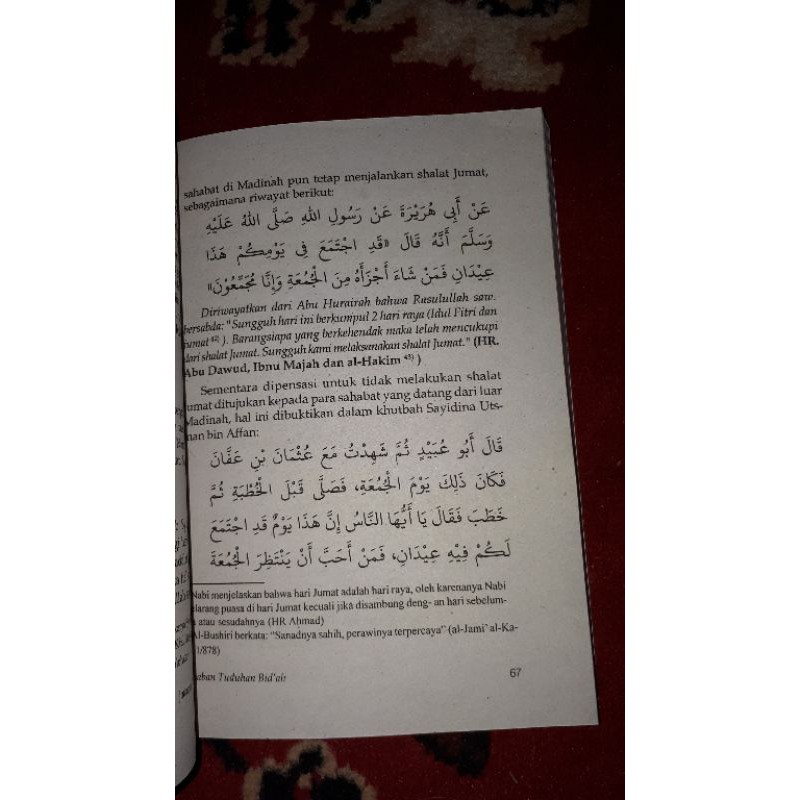 sahabat di Madinah pun tetap menjalankan shalat Jumat,
sebagaimana riwayat berikut:
عَنْ أَبِي هُرَيْرَةَ عَنْ رَسُولِ اللهِ صَلَّى اللهُ عَلَيْهِ
وَسَلَّمَ أَنَّهُ قَالَ «قَدِ اجْتَمَعَ فِى يَوْمِكُمْ هَذَا
عِيْدَانِ فَمَنْ شَاءَ أَجْزَأَهُ مِنَ الْجُمُعَةِ وَإِنَّا مُجَمِّعُوْنَ»
Diriwayatkan dari Abu Hurairah bahwa Rasulullah saw.
bersabda: "Sungguh hari ini berkumpul 2 hari raya (Idul Fitri dan
Jumat 42) ). Barangsiapa yang berkehendak maka telah mencukupi
dari shalat Jumat. Sungguh kami melaksanakan shalat Jumat." (HR.
Abu Dawud, Ibnu Majah dan al-Hakim 43) )
Sementara dipensasi untuk tidak melakukan shalat
Jumat ditujukan kepada para sahabat yang datang dari luar
Madinah, hal ini dibuktikan dalam khutbah Sayidina Uts-
man bin Affan:
قَالَ أَبُو عُبَيْدٍ ثُمَّ شَهِدْتُ مَعَ عُثْمَانَ بْنِ عَفَّانَ
فَكَانَ ذَلِكَ يَوْمَ الْجُمُعَةِ، فَصَلَّى قَبْلَ الْخُطْبَةِ ثُمَّ
خَطَبَ فَقَالَ يَا أَيُّهَا النَّاسُ إِنَّ هَذَا يَوْمٌ قَدِ اجْتَمَعَ
لَكُمْ فِيْهِ عِيْدَانِ، فَمَنْ أَحَبَّ أَنْ يَنْتَظِرَ الْجُمُعَةَ
Nabi menjelaskan bahwa hari Jumat adalah hari raya, oleh karenanya Nabi
larang puasa di hari Jumat kecuali jika disambung deng- an hari sebelum-
a atau sesudahnya (HR Ahmad)
Al-Bushiri berkata: "Sanadnya sahih, perawinya terpercaya" (al-Jami' al-Ka-
1/878)
aban Tuduhan Bid'ah
67